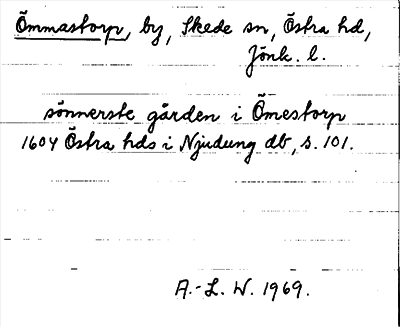 Ömmastorp, by, Skede sn, Östra hd,
Jönk. l.
sönnerste gården i Ömestorp
1604 Östra hds i Njudung db, s. 101.
A.-L. W. 1969.